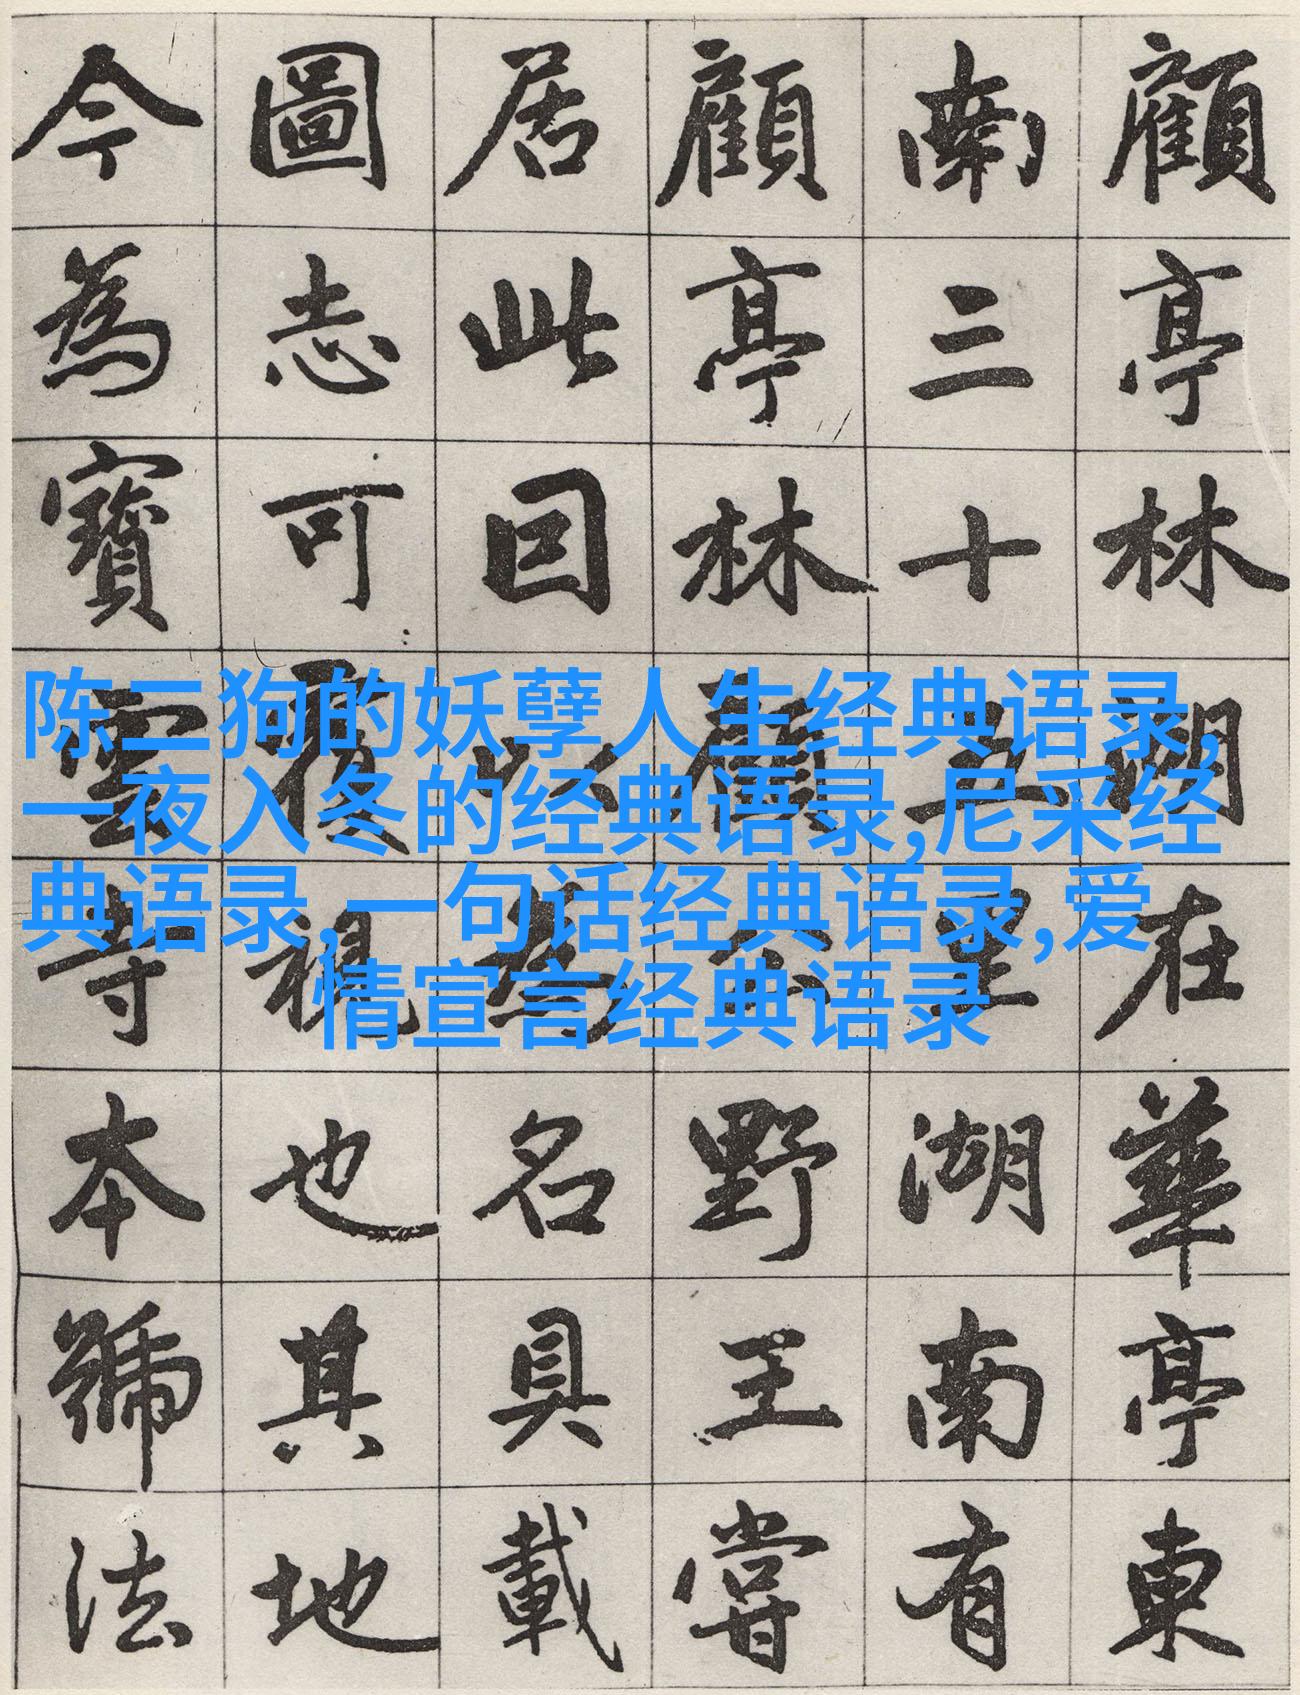 顧亭林湖在華亭東
南三十五里湖南有
顧亭林顧公野王嘗
居此因以為名具載
圖志可覆視也其地
今為寶雲寺本號法
陈二狗的妖孽人生经典语录,
一夜入冬的经典语录,尼采经
典语录,一句话经典语录,爱
情宣言经典语录